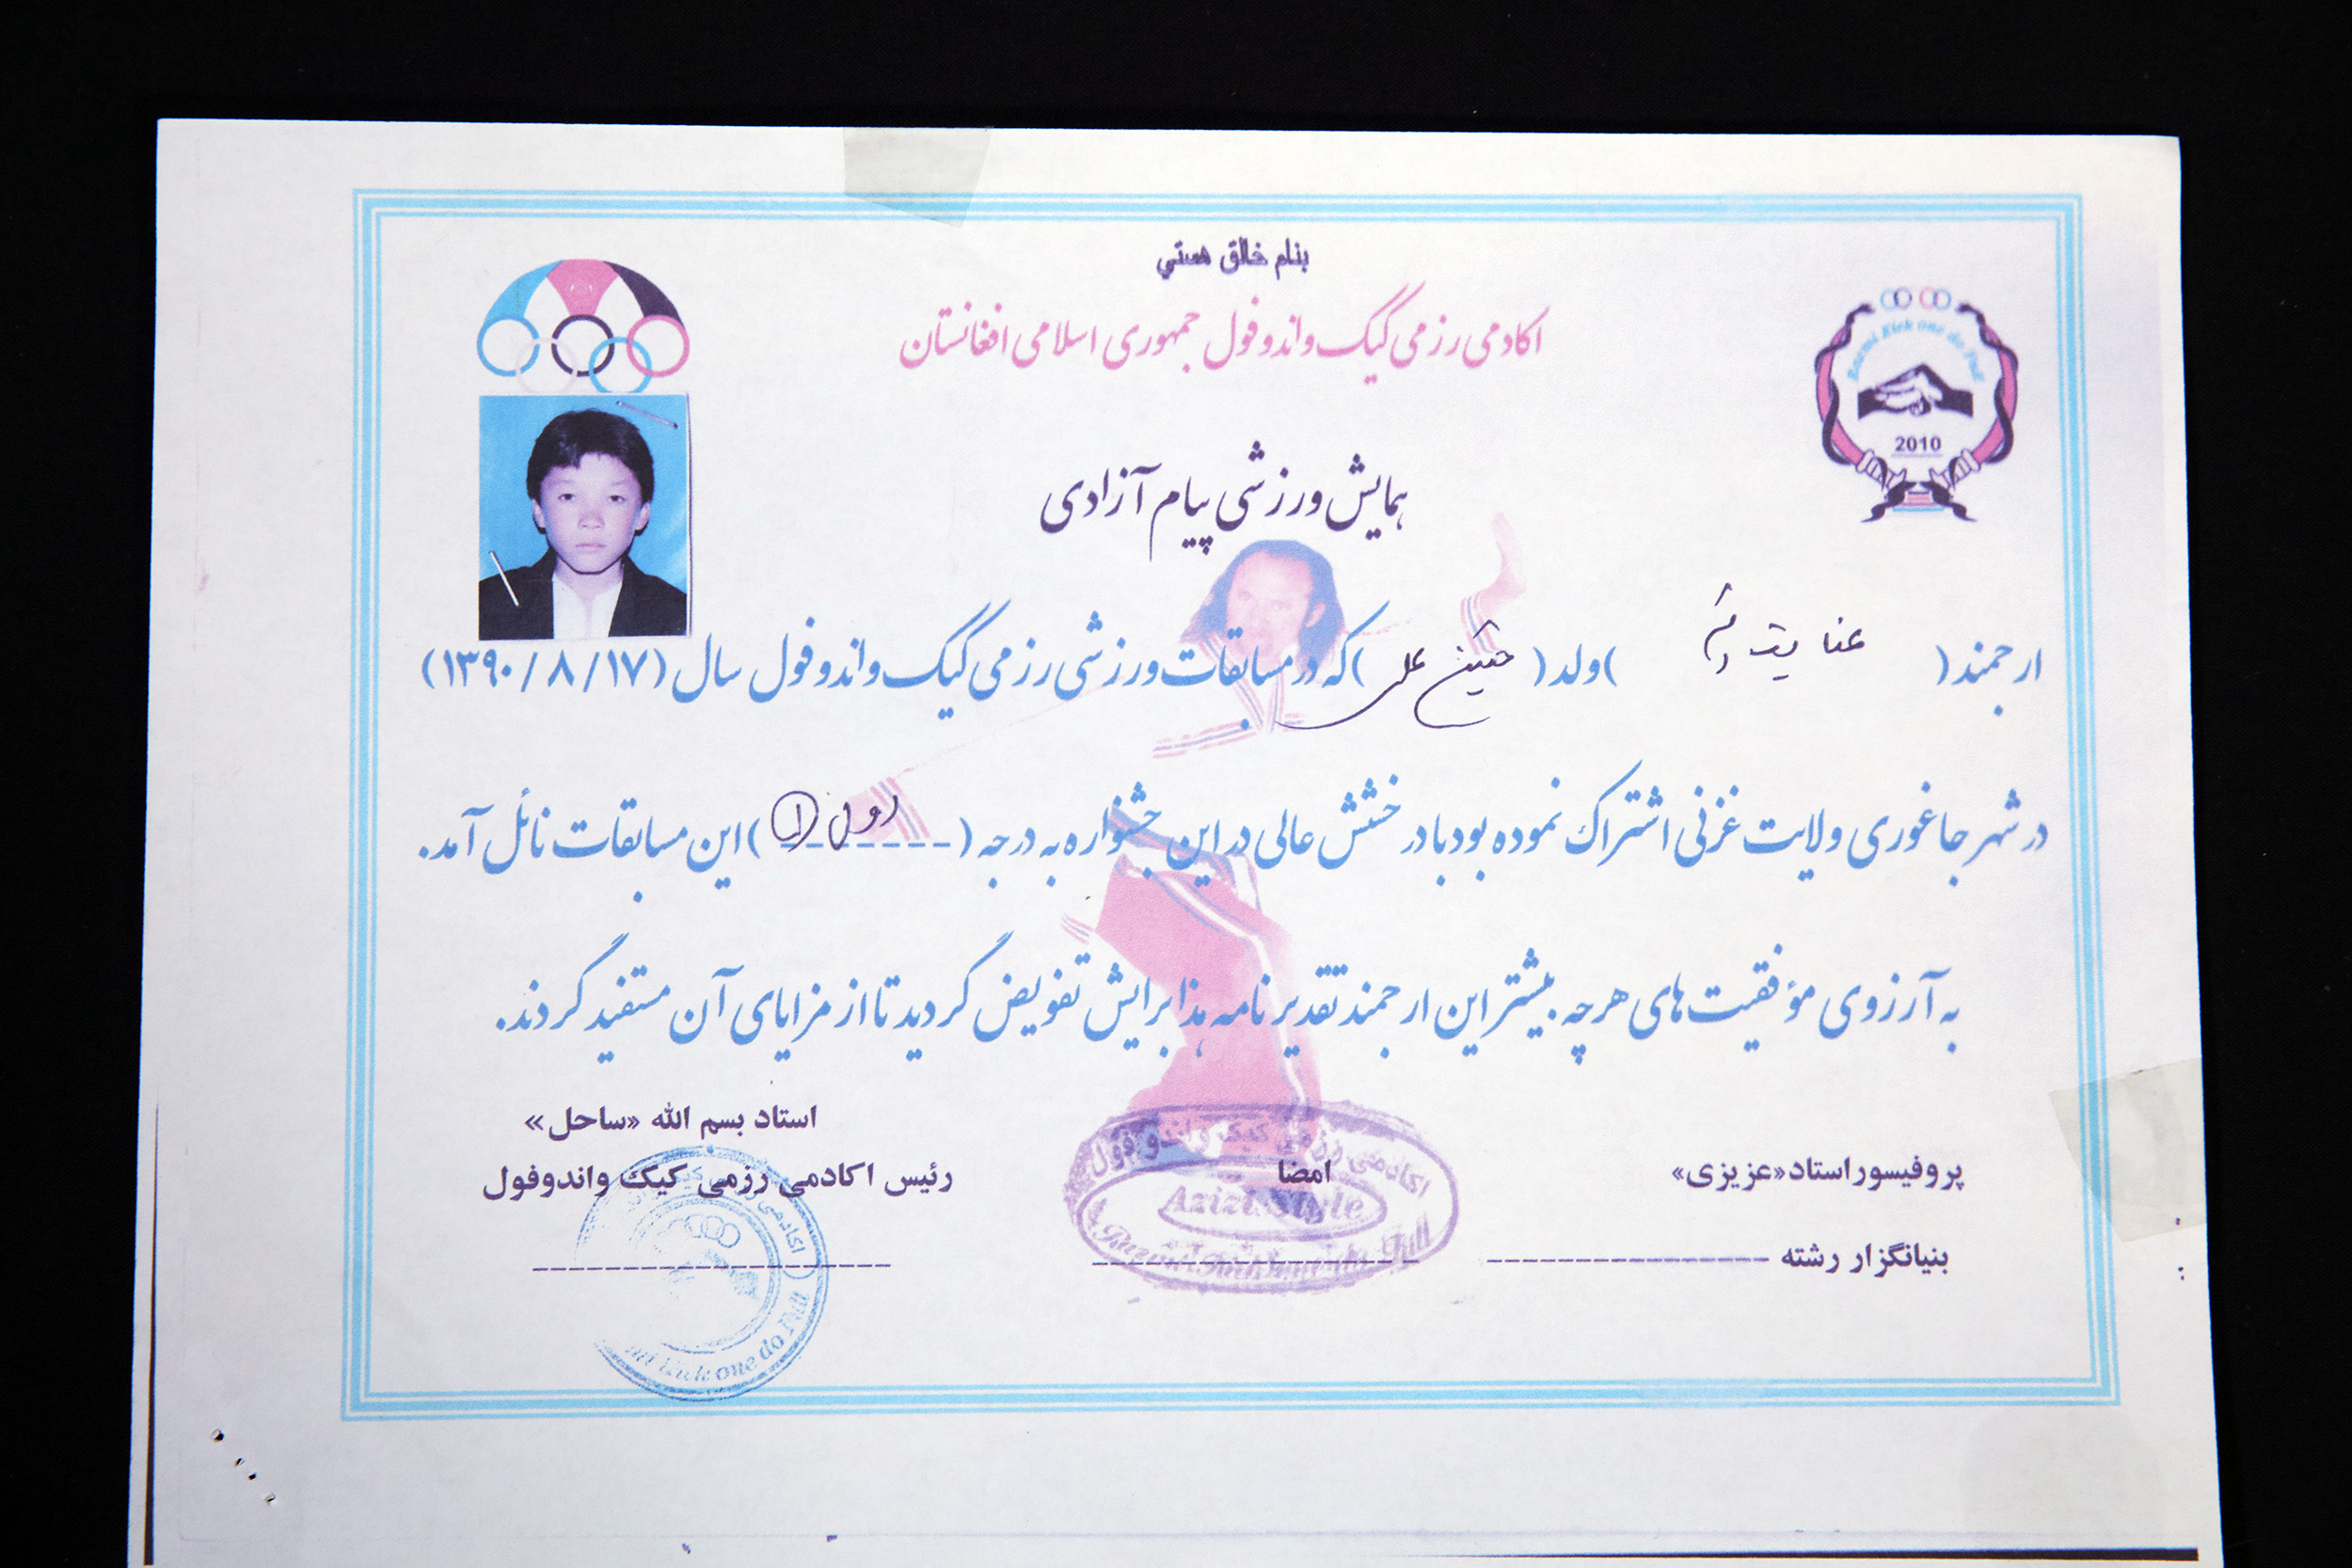 بنام خالق هستی
اکادمی رزمی کیک واندوفول جمهوری اسلامی افغانستان
Kick one do Full
2010
همایش ورزشی پیام آزادی
ارجمند ( عنایت ) ولد ( حسین علی ) که در مسابقات ورزشی رزمی کیک واندوفول سال (۱۳۹۰/۸/۱۷)
در شهر جاغوری ولایت غزنی اشتراک نموده بود با درخشش عالی در این جشنواره به درجه ( اول ) این مسابقات نائل آمد.
به آرزوی مؤفقیت های هرچه بیشتر این ارجمند تقدیر نامه هذا برایش تفویض گردید تا از مزایای آن مستفید گردند.
پروفیسور استاد «عزیزی»
بنیانگزار رشته
امضا
استاد بسم الله «ساحل»
رئیس اکادمی رزمی کیک واندوفول
اکادمی رزمی کیک واندو فول
Azizi Style
اکادمی
Kick one do Full